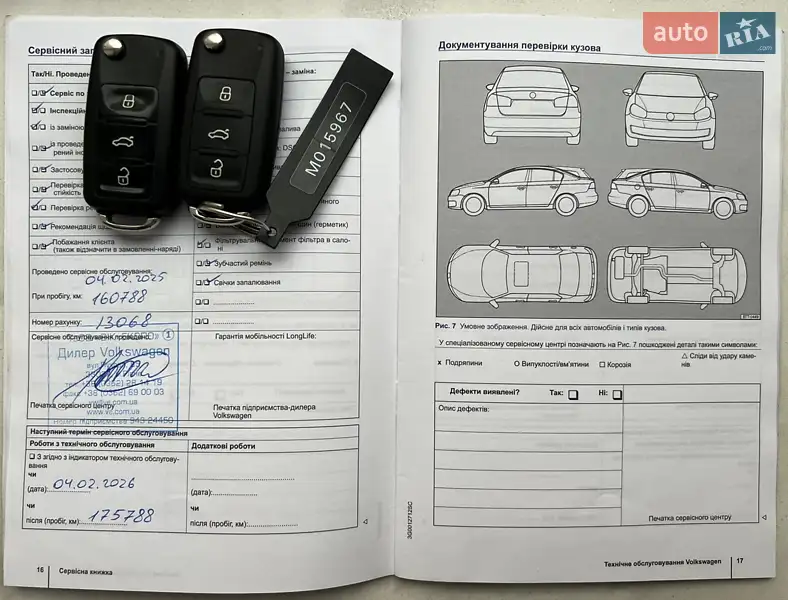 auto RIA .com
Сервісний
Документування перевірки кузова
Так/Ні. Проведен
– заміна:
Сервіс по
Інспекційн
із заміною
палива
із проведе
рений
Застосову
Перевірка
стійкість
Перевірка
Рекомендація
(герметик)
Побажання клієнта
(також відзначити в замовленні-наряді)
фільтра в сало-
ні
Зубчастий ремінь
Свічки запалювання
Проведено сервісне обслуговування:
04.02.2025
При пробігу, км: 160788
Номер рахунку: 13068
Сервісне обслуговування проведено:
Гарантія мобільності LongLife:
1
Дилер Volkswagen
Печатка сервісного центру
Печатка підприємства-дилера
Volkswagen
Наступний термін сервісного обслуговування
Роботи з технічного обслуговування
Додаткові роботи
З згідно з індикатором технічного обслугову-
вання
чи
(дата): 04.02.2026
(дата):
чи
чи
після (пробіг, км): 175788
після (пробіг, км):
16 Сервісна книжка
M015967
Рис. 7 Умовне зображення. Дійсне для всіх автомобілів і типів кузова.
У спеціалізованому сервісному центрі позначають на Рис. 7 пошкоджені деталі такими символами:
x Подряпини O Випуклості/вм'ятини □ Корозія △ Сліди від удару каме-
нів
Дефекти виявлені? Так: Ні:
Опис дефектів:
Печатка сервісного центру
3G0012712SC
Технічне обслуговування Volkswagen 17